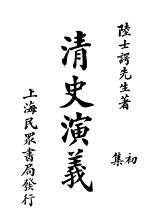 陸士諤先生著
清史演義
初集
上海民眾書局發行